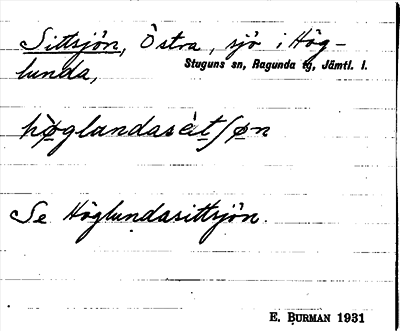 Sittsjön, Östra, sjö i Hög-
lunda, Stuguns sn, Ragunda tg, Jämtl. l.
hø̀glundasèt ʃøn
Se Höglundasittsjön.
E. BURMAN 1931